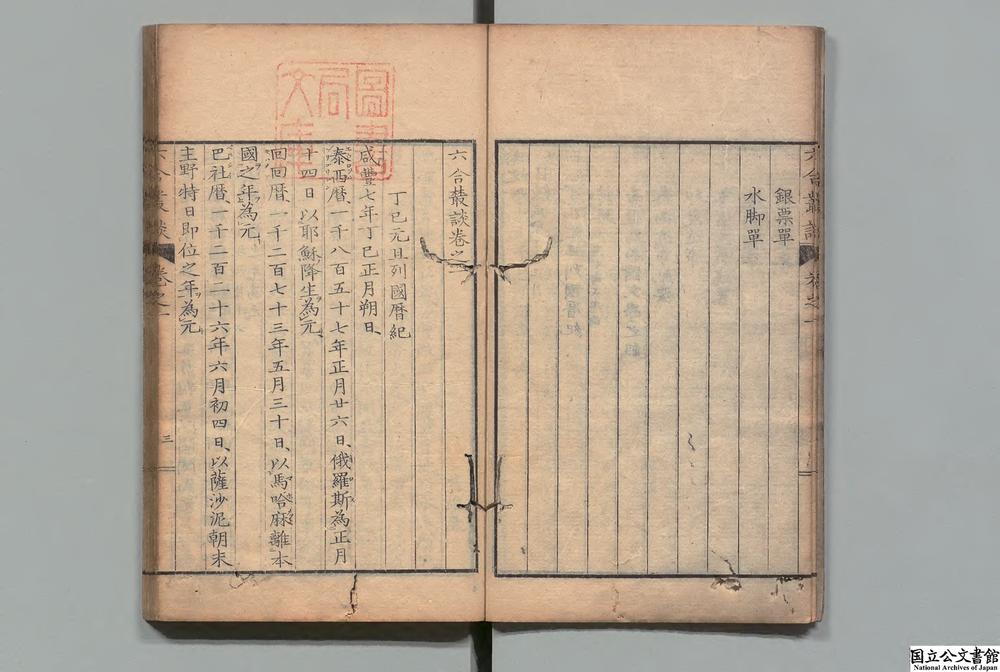 銀票單
水脚單
六合叢談卷之一
丁巳元旦列國暦紀
咸豐七年丁巳正月朔日、
泰西暦、一千八百五十七年正月廿六日、俄羅斯為正月
十四日、以耶穌降生為元、
回回暦、一千二百七十三年五月三十日、以馬哈麻離本
國之年為元
巴社暦、一千二百二十六年六月初四日、以薩沙泥朝末
主野特日即位之年為元
六合叢談
卷之一
三
圖書
局
文庫
国立公文書館
National Archives of Japan